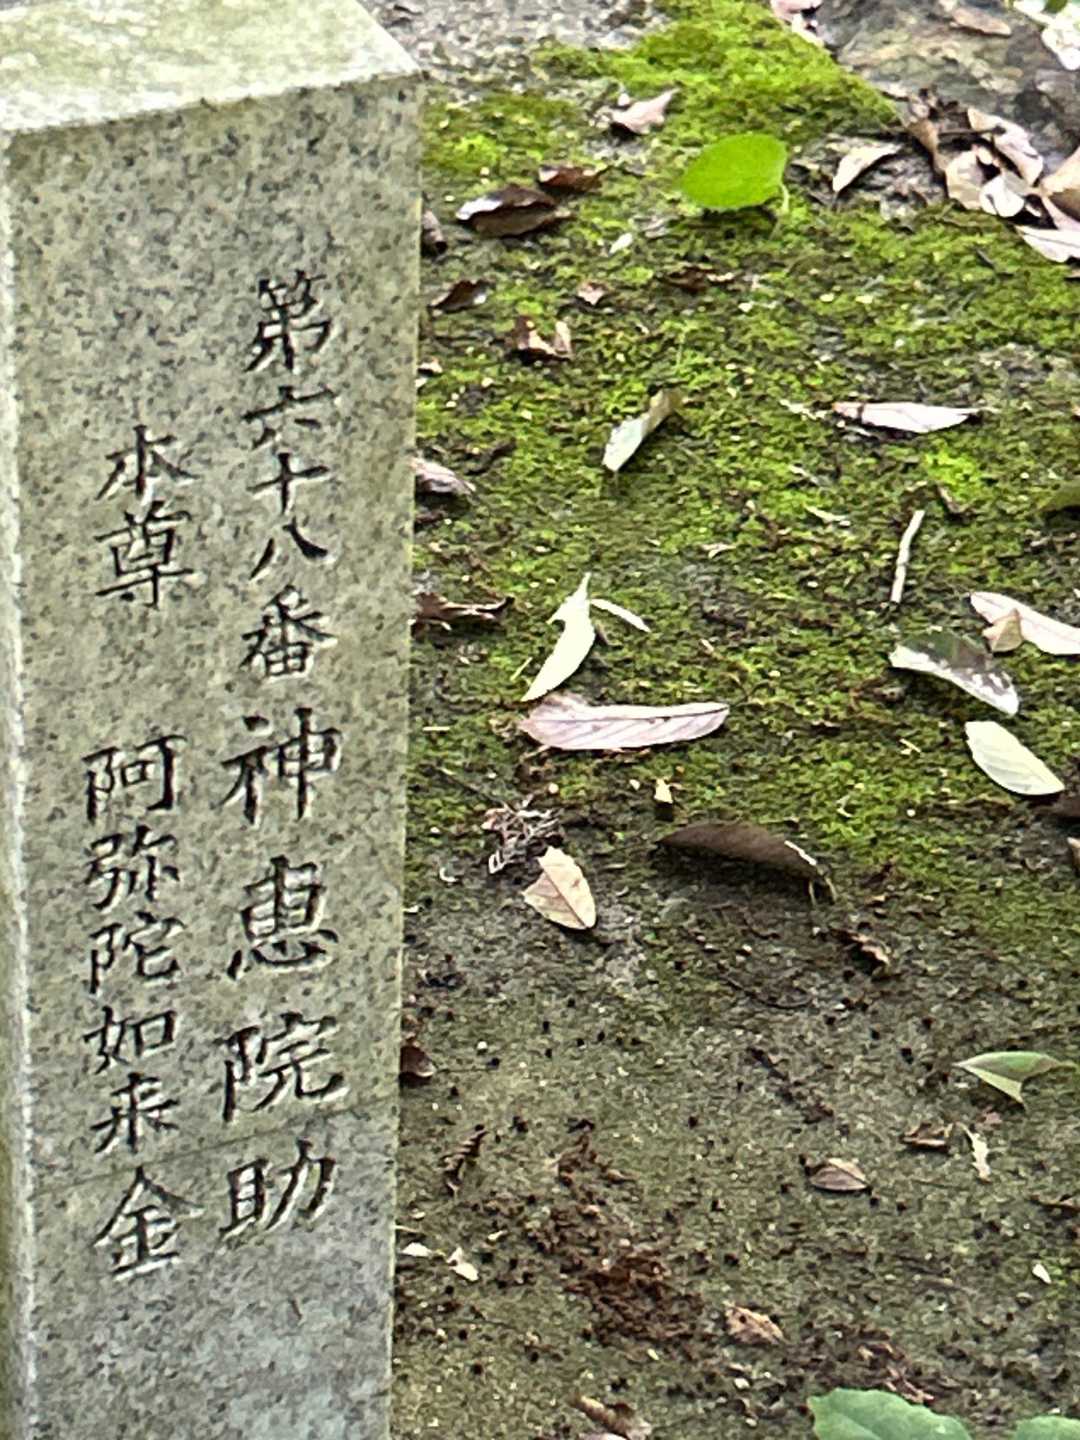 第六十八番神恵院助
本尊 阿弥陀如来金